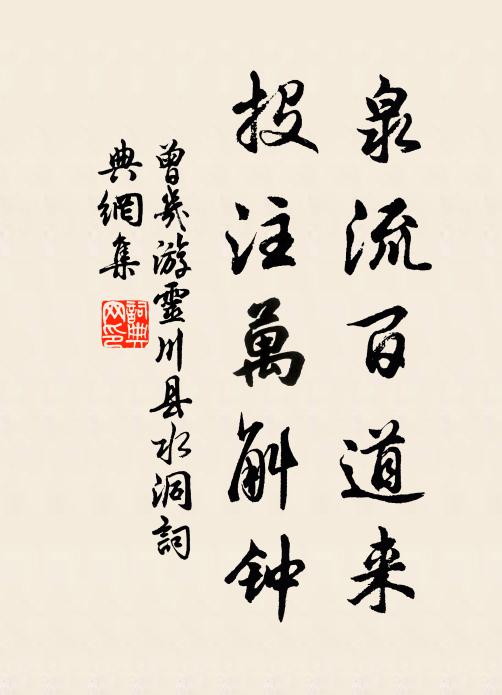 泉流百道来
投注萬斛钟
曾幾游靈川县水洞詞
典網集
詞典
网印